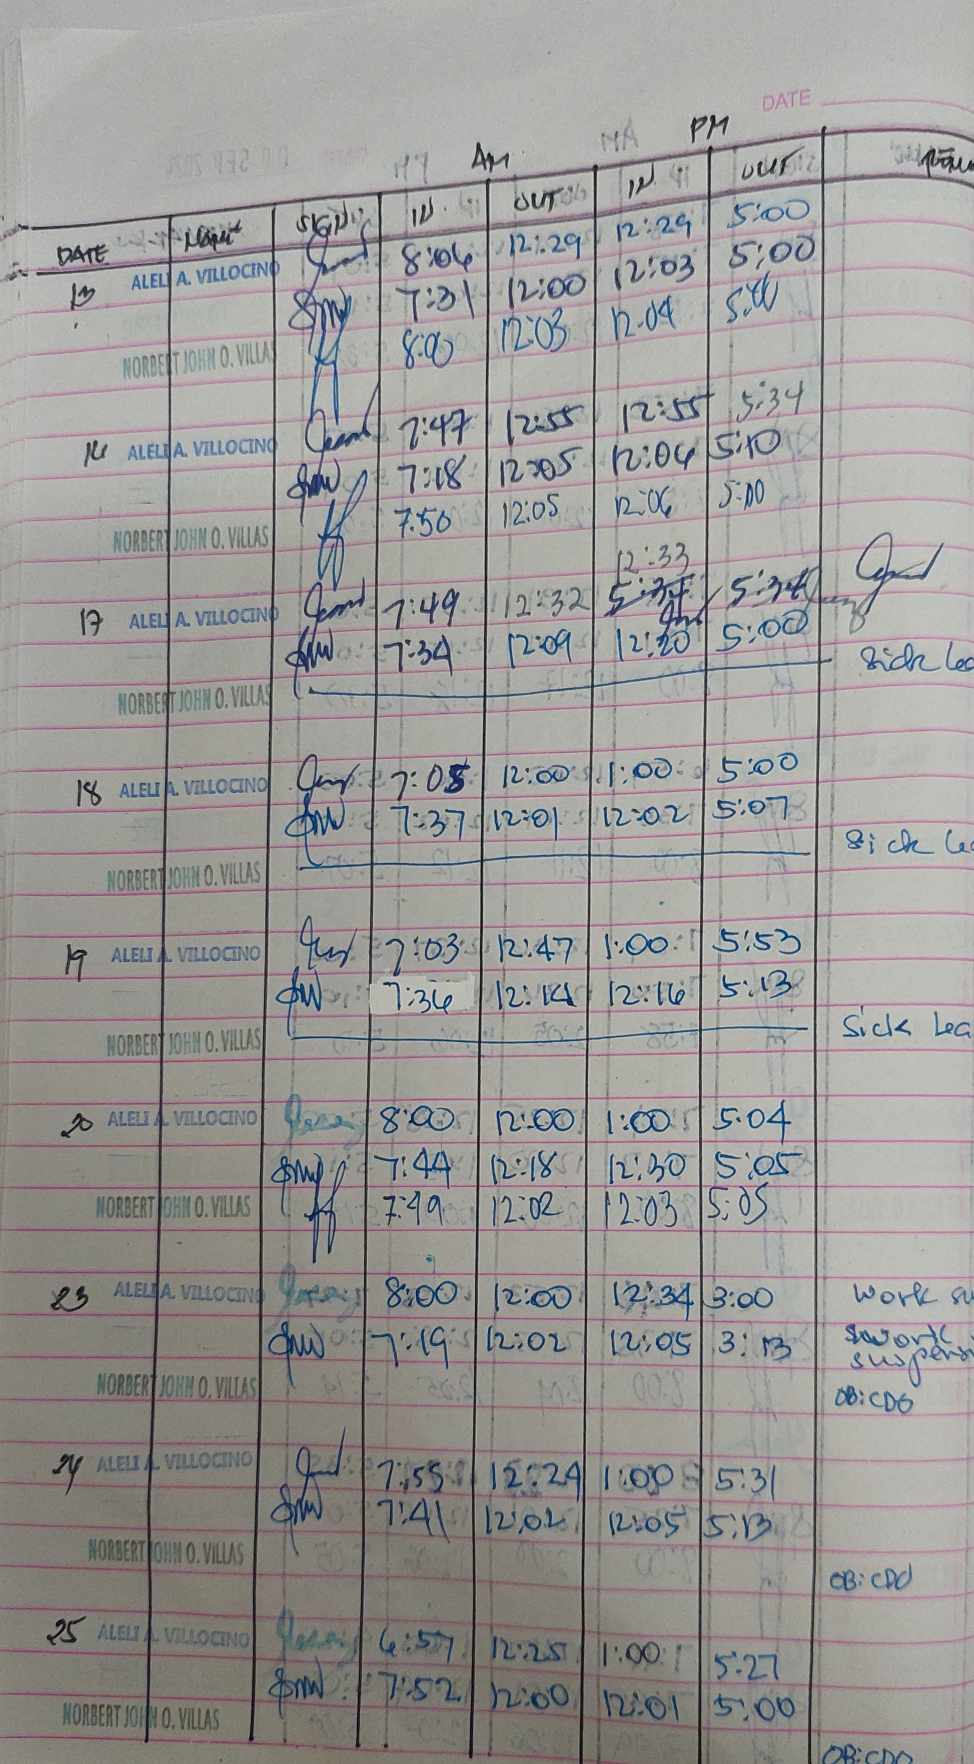 DATE
AM PM
DATE Name SIGN. IN OUT IN OUT
13 ALELI A. VILLOCINO 8:06 12:29 12:29 5:00
7:31 12:00 12:03 5:00
NORBERT JOHN O. VILLAS 8:00 12:03 12:04 5:00
14 ALELI A. VILLOCINO 7:47 12:55 12:55 5:34
7:18 12:05 12:06 5:10
NORBERT JOHN O. VILLAS 7:50 12:05 12:06 5:00
12:33
17 ALELI A. VILLOCINO 7:49 12:32 5:34 5:34
7:34 12:09 12:20 5:00
NORBERT JOHN O. VILLAS Sick Lea
18 ALELI A. VILLOCINO 7:05 12:00 1:00 5:00
7:37 12:01 12:02 5:07
NORBERT JOHN O. VILLAS Sick Le
19 ALELI A. VILLOCINO 7:03 12:47 1:00 5:53
7:36 12:14 12:16 5:13
NORBERT JOHN O. VILLAS Sick Lea
20 ALELI A. VILLOCINO 8:00 12:00 1:00 5:04
7:44 12:18 12:30 5:05
NORBERT JOHN O. VILLAS 7:49 12:02 12:03 5:05
23 ALELI A. VILLOCINO 8:00 12:00 12:34 3:00 Work su
7:19 12:02 12:05 3:13 work suspensi
NORBERT JOHN O. VILLAS OB:CDO
24 ALELI A. VILLOCINO 7:55 12:24 1:00 5:31
7:41 12:02 12:05 5:13
NORBERT JOHN O. VILLAS OB:CDO
25 ALELI A. VILLOCINO 6:57 12:25 1:00 5:27
7:52 12:00 12:01 5:00
NORBERT JOHN O. VILLAS OB:CDO